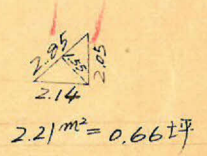 2.85
1.55
2.05
2.14
2.21 m² = 0.66 坪